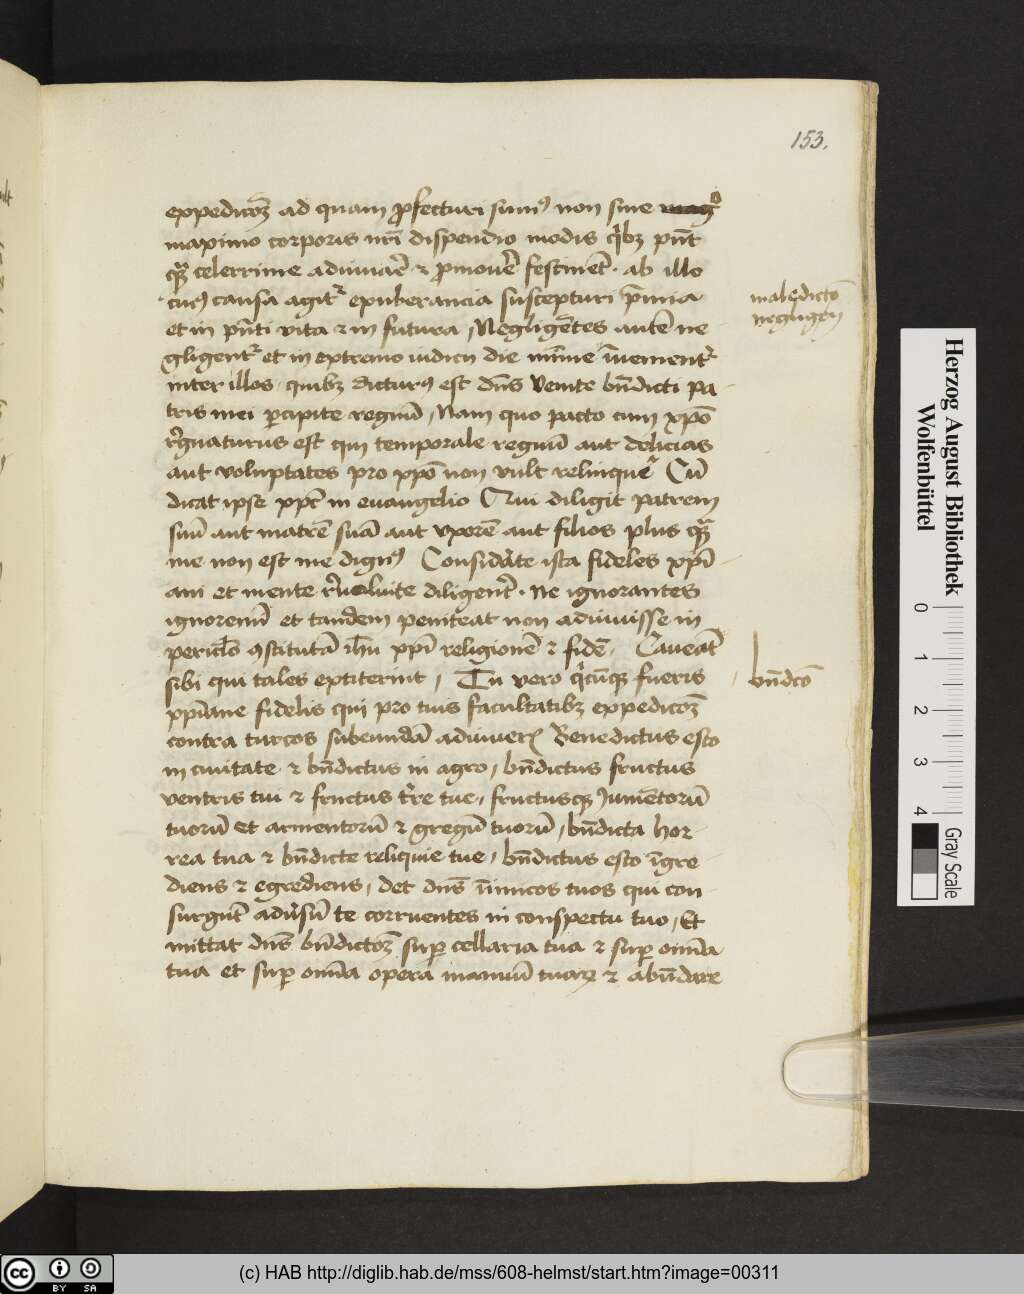 153.
expedicōꝫ ad quam ꝓfecturi sumꝰ non sine
maximo corporis nrī dispendio modis qͥbꝫ pn̄t
qͣꝫ celerrime adiuuar̄e ⁊ ꝓmouer̄e festinet̄. ab illo
cuiꝰ causa agitͬ exuberancia suscepturi p̄mia
et in pn̄ti vita ⁊ in futura, Negligētes autē ne
gligentͬ et in extremo iudicii die mīme īuenientͬ
inter illos quibꝫ dicturꝰ est dn̄s Venite bn̄dicti pa
tris mei ꝑcipite regnū, Nam quo pacto cum xp̄o
rͤgnaturus est qui temporale regnū aut delicias
aut voluptates pro xp̄o non vult relinquer̄ Cū
dicat ipse xpc̄ in euangelio Qui diligit patrem
suū aut matrē suā aut vxorē aut filios plus qͣꝫ
me non est me dignꝰ Considᵉate ista fideles xp̄i
ani et mente rᵉuoluite diligent̄. ne ignorantes
ignoremī et tandem peniteat non adiuuisse in
pericl̄o ꝯstitutā ih̄u xp̄i religionē ⁊ fidē. Caueāt
sibi qui tales extiterint, Tu vero qͥcūqꝫ fueris
xp̄iane fidelis qui pro tuis facultatibꝫ expedicōꝫ
contra turcos subeundā adiuueris Benedictus esto
in ciuitate ⁊ bn̄dictus in agro, bn̄dictus fructus
ventris tui ⁊ fructus tᵉre tue, fructusqꝫ Jumētorū
tuorū Et armentorū ⁊ gregū tuorū, bn̄dicta hor
rea tua ⁊ bn̄dicte reliquie tue, bn̄dictus esto īgre
diens ⁊ egrediens, det dn̄s īimicos tuos qui con
surgūt aduᵉsū te corruentes in conspectu tuo, Et
mittat dn̄s bn̄dictōꝫ suꝑ cellaria tua ⁊ suꝑ omīa
tua et suꝑ omīa opera manuū tuaꝝ ⁊ abūdare
maledictō
neglıgen
bn̄dcō
Herzog August Bibliothek
Wolfenbüttel
0 1 2 3 4
Gray Scale
(c) HAB http://diglib.hab.de/mss/608-helmst/start.htm?image=00311
cc BY SA